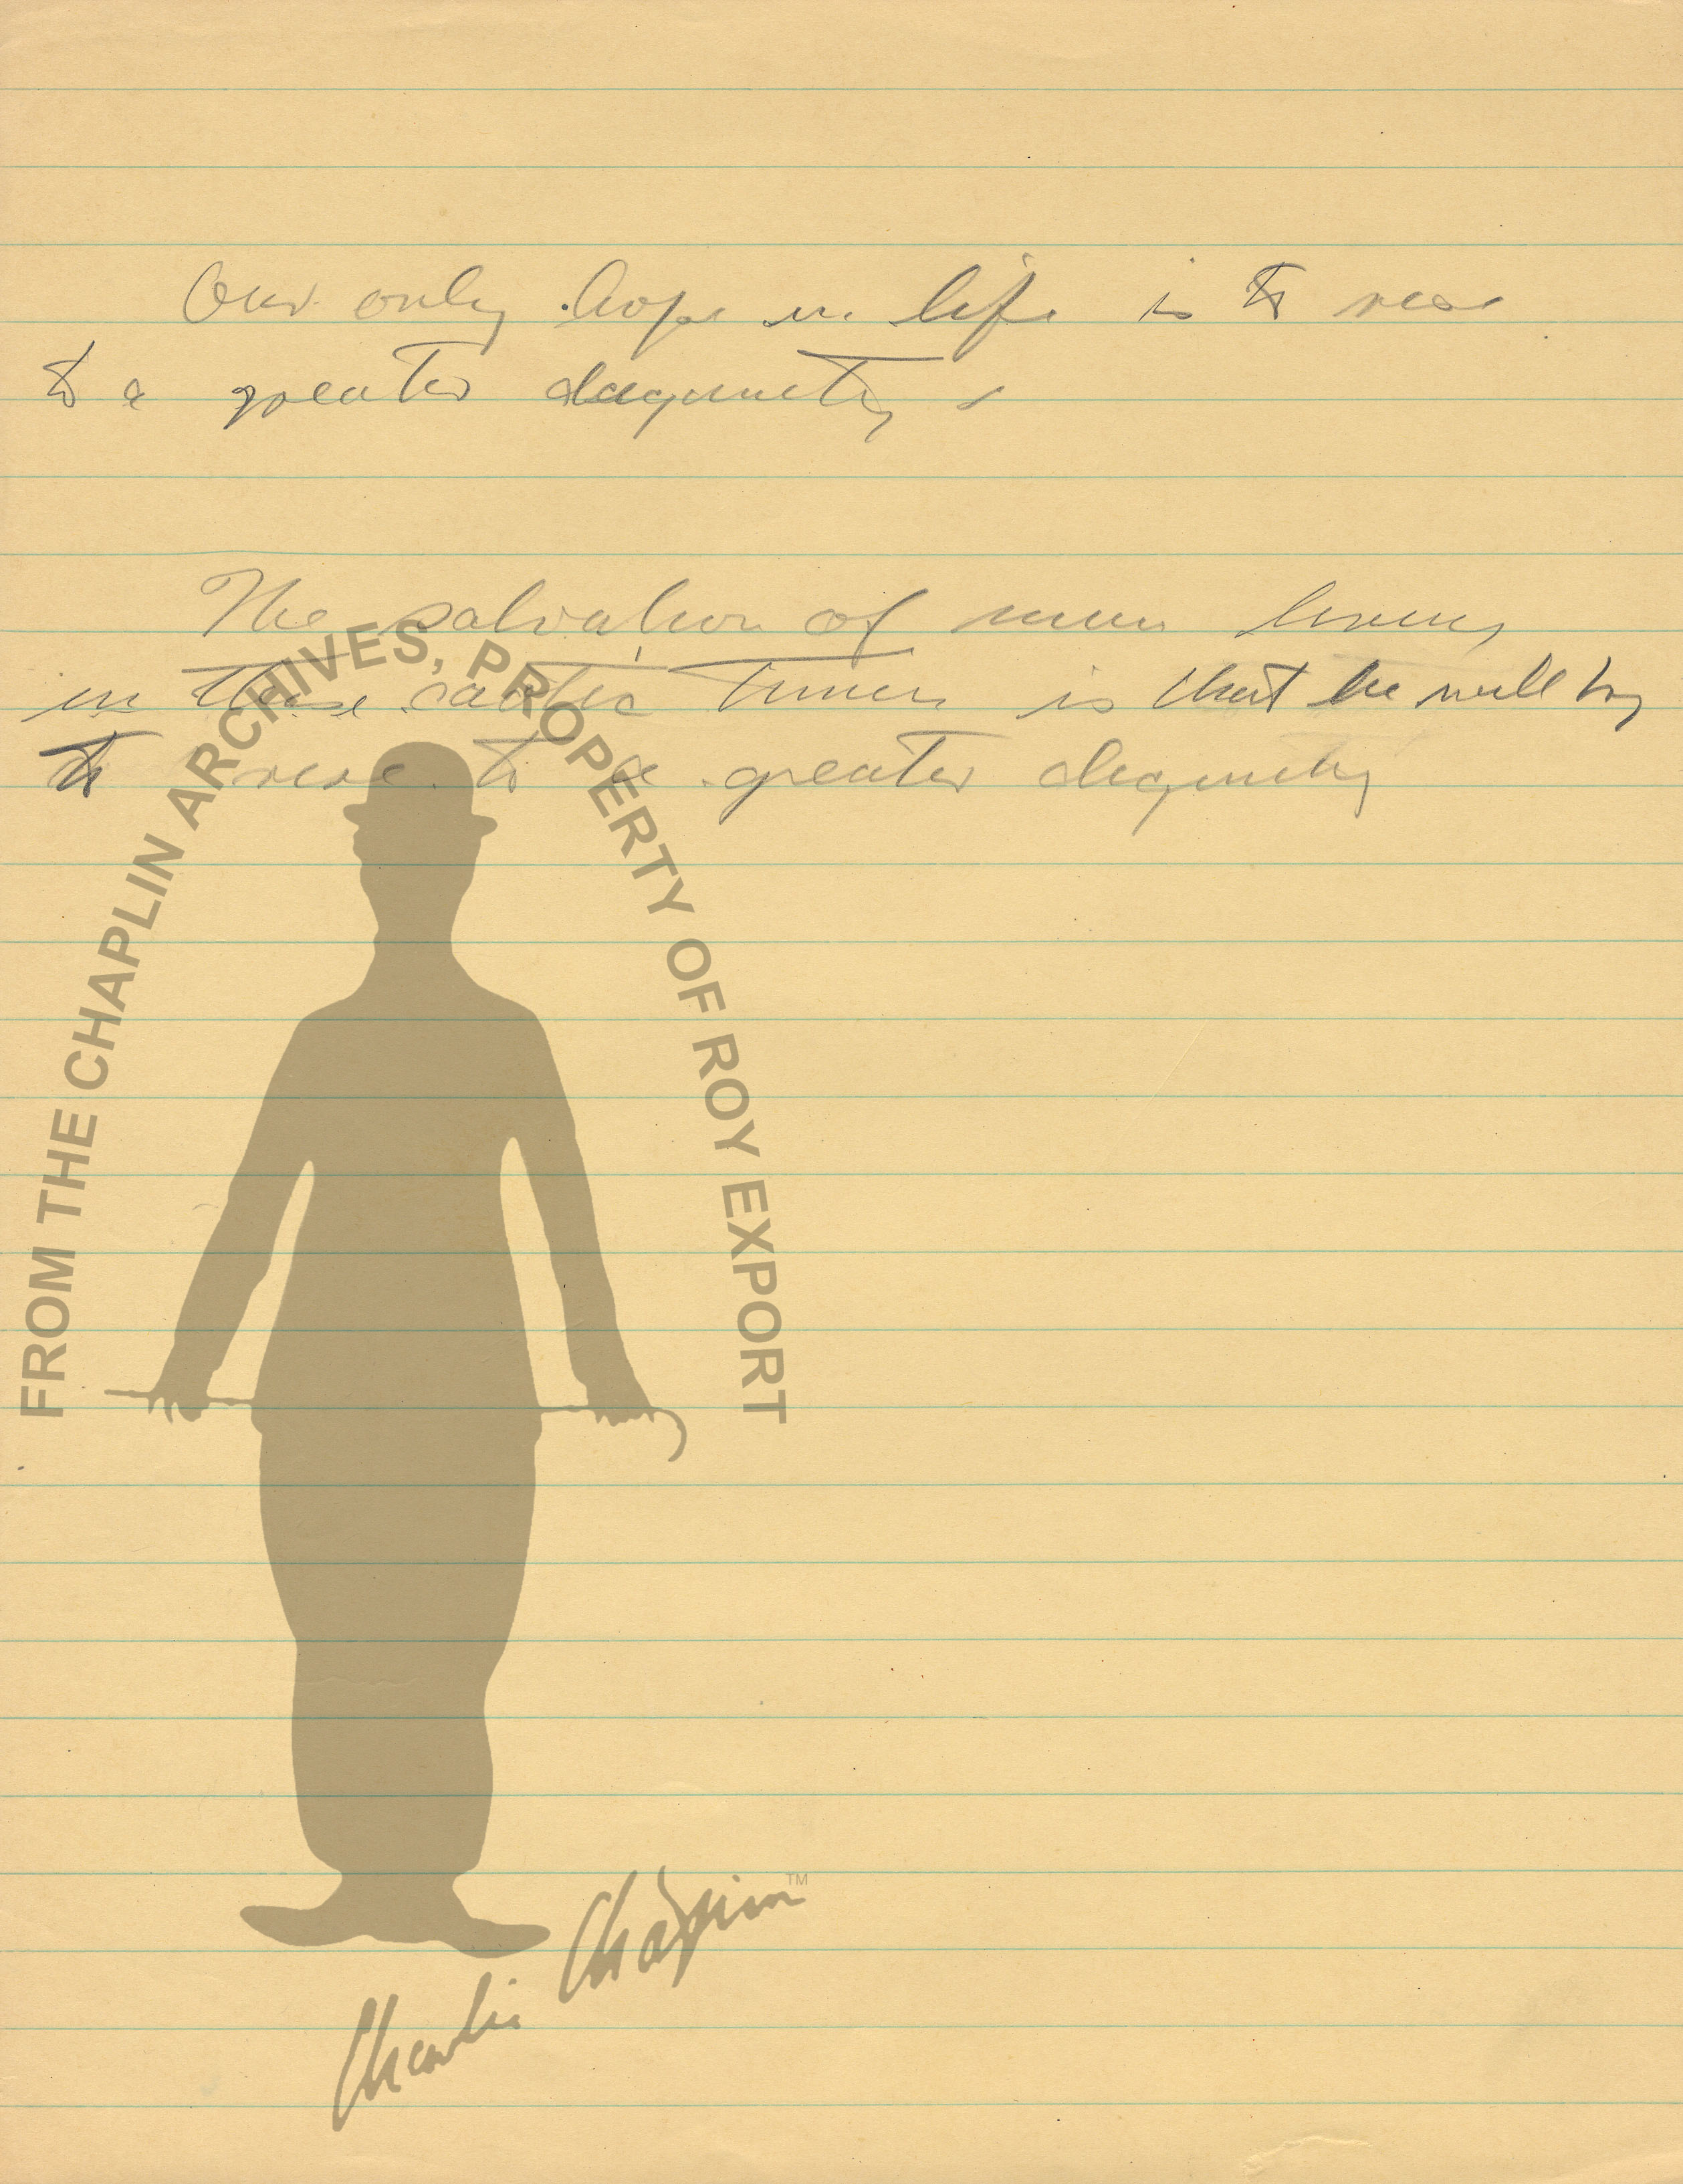 Our only hope in life is to rise
to a greater dignity
The salvation of man living
in these caotic times is that he will try
to rise to a greater dignity
FROM THE CHAPLIN ARCHIVES, PROPERTY OF ROY EXPORT
Charlie Chaplin™